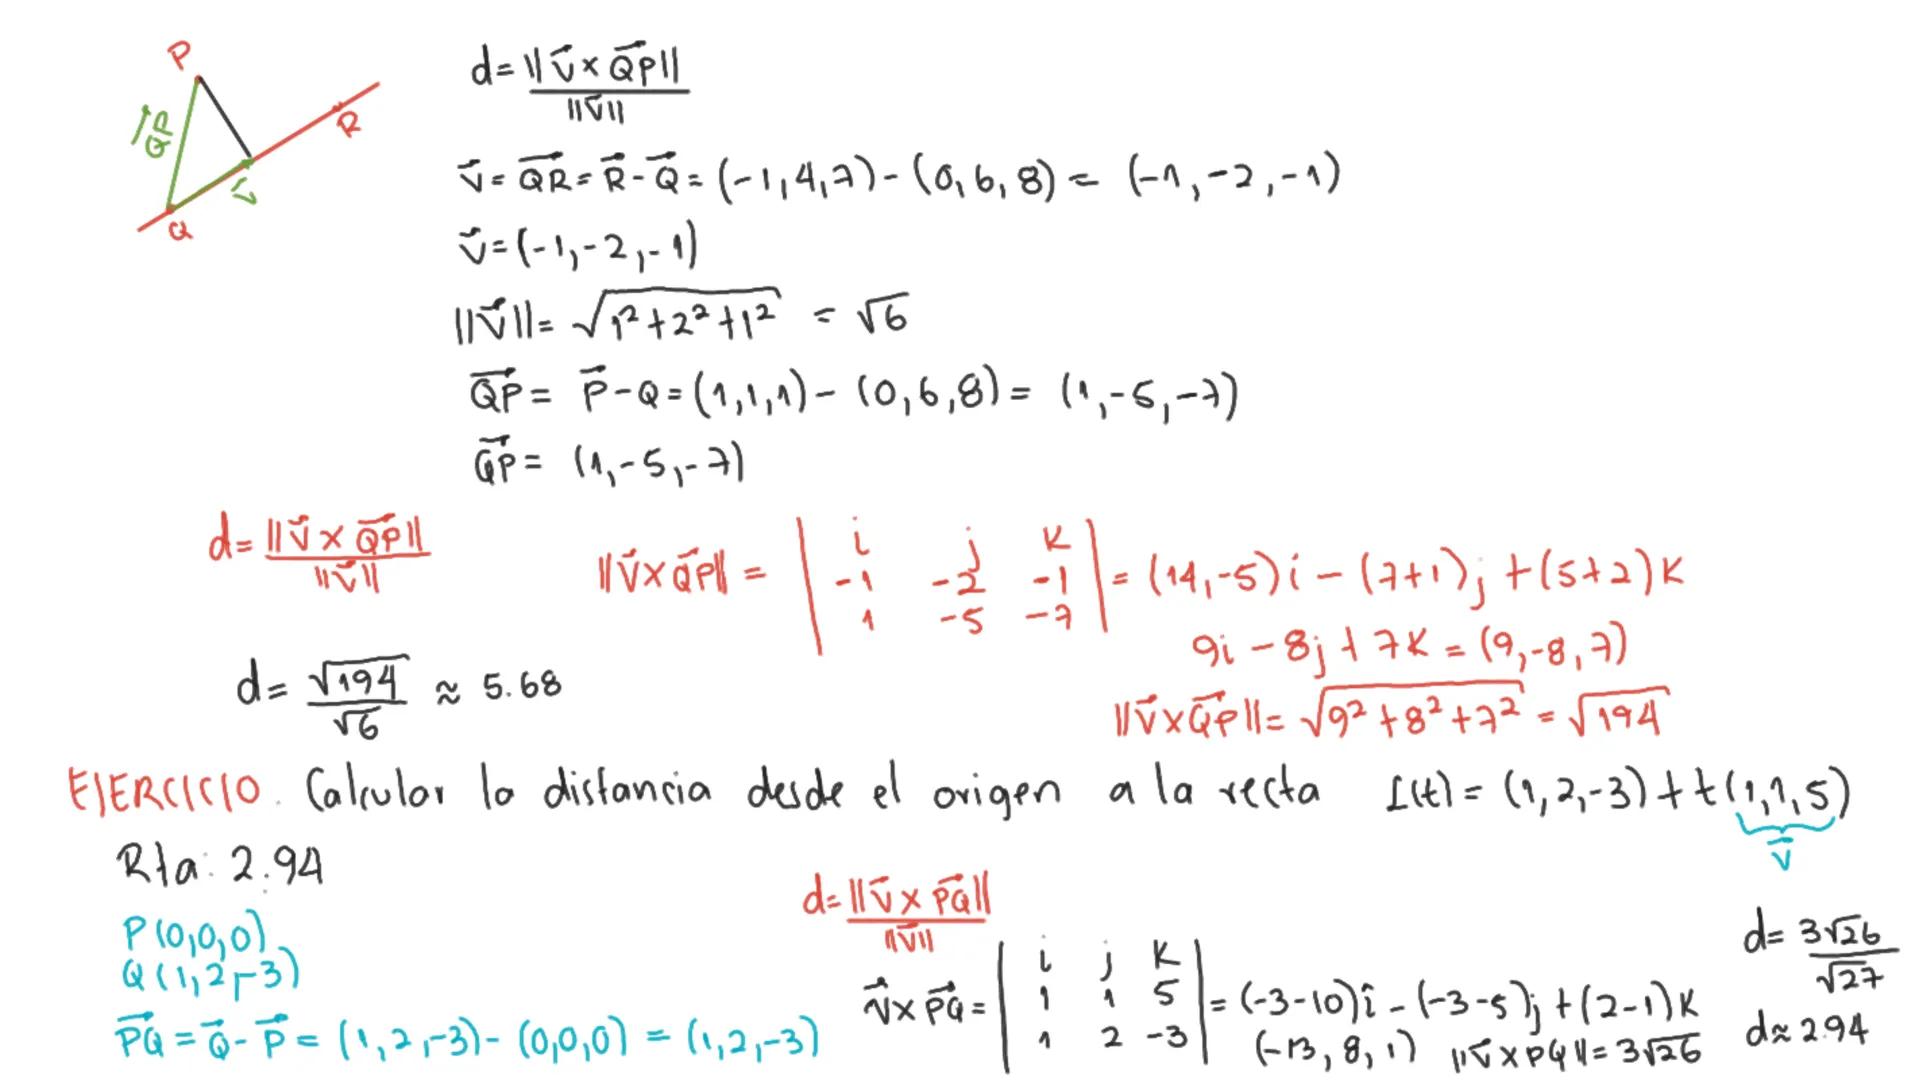 P
QP
R
V
Q
d = ||V⃗ × QP⃗|| / ||V⃗||
V⃗ = QR⃗ = R⃗ - Q⃗ = (-1,4,7) - (0,6,8) = (-1,-2,-1)
V⃗ = (-1,-2,-1)
||V⃗|| = √(1² + 2² + 1²) = √6
QP⃗ = P⃗ - Q = (1,1,1) - (0,6,8) = (1,-5,-7)
QP⃗ = (1,-5,-7)
d = ||V⃗ × QP⃗|| / ||V⃗||
||V⃗ × QP⃗|| = | i j K
-1 -2 -1
1 -5 -7 | = (14,-5)i - (7+1)j + (5+2)K
9i - 8j + 7K = (9,-8,7)
||V⃗ × QP⃗|| = √(9² + 8² + 7²) = √194
d = √194 / √6 ≈ 5.68
EJERCICIO. Calcular la distancia desde el origen a la recta L(t) = (1,2,-3) + t(1,1,5)
V⃗
Rta: 2.94
P(0,0,0)
Q(1,2,-3)
PQ⃗ = Q⃗ - P⃗ = (1,2,-3) - (0,0,0) = (1,2,-3)
d = ||V⃗ × PQ⃗|| / ||V⃗||
V⃗ × PQ⃗ = | i j K
1 1 5
1 2 -3 | = (-3-10)i - (-3-5)j + (2-1)K
(-13, 8, 1) ||V⃗ × PQ|| = 3√26
d = 3√26 / √27
d ≈ 2.94